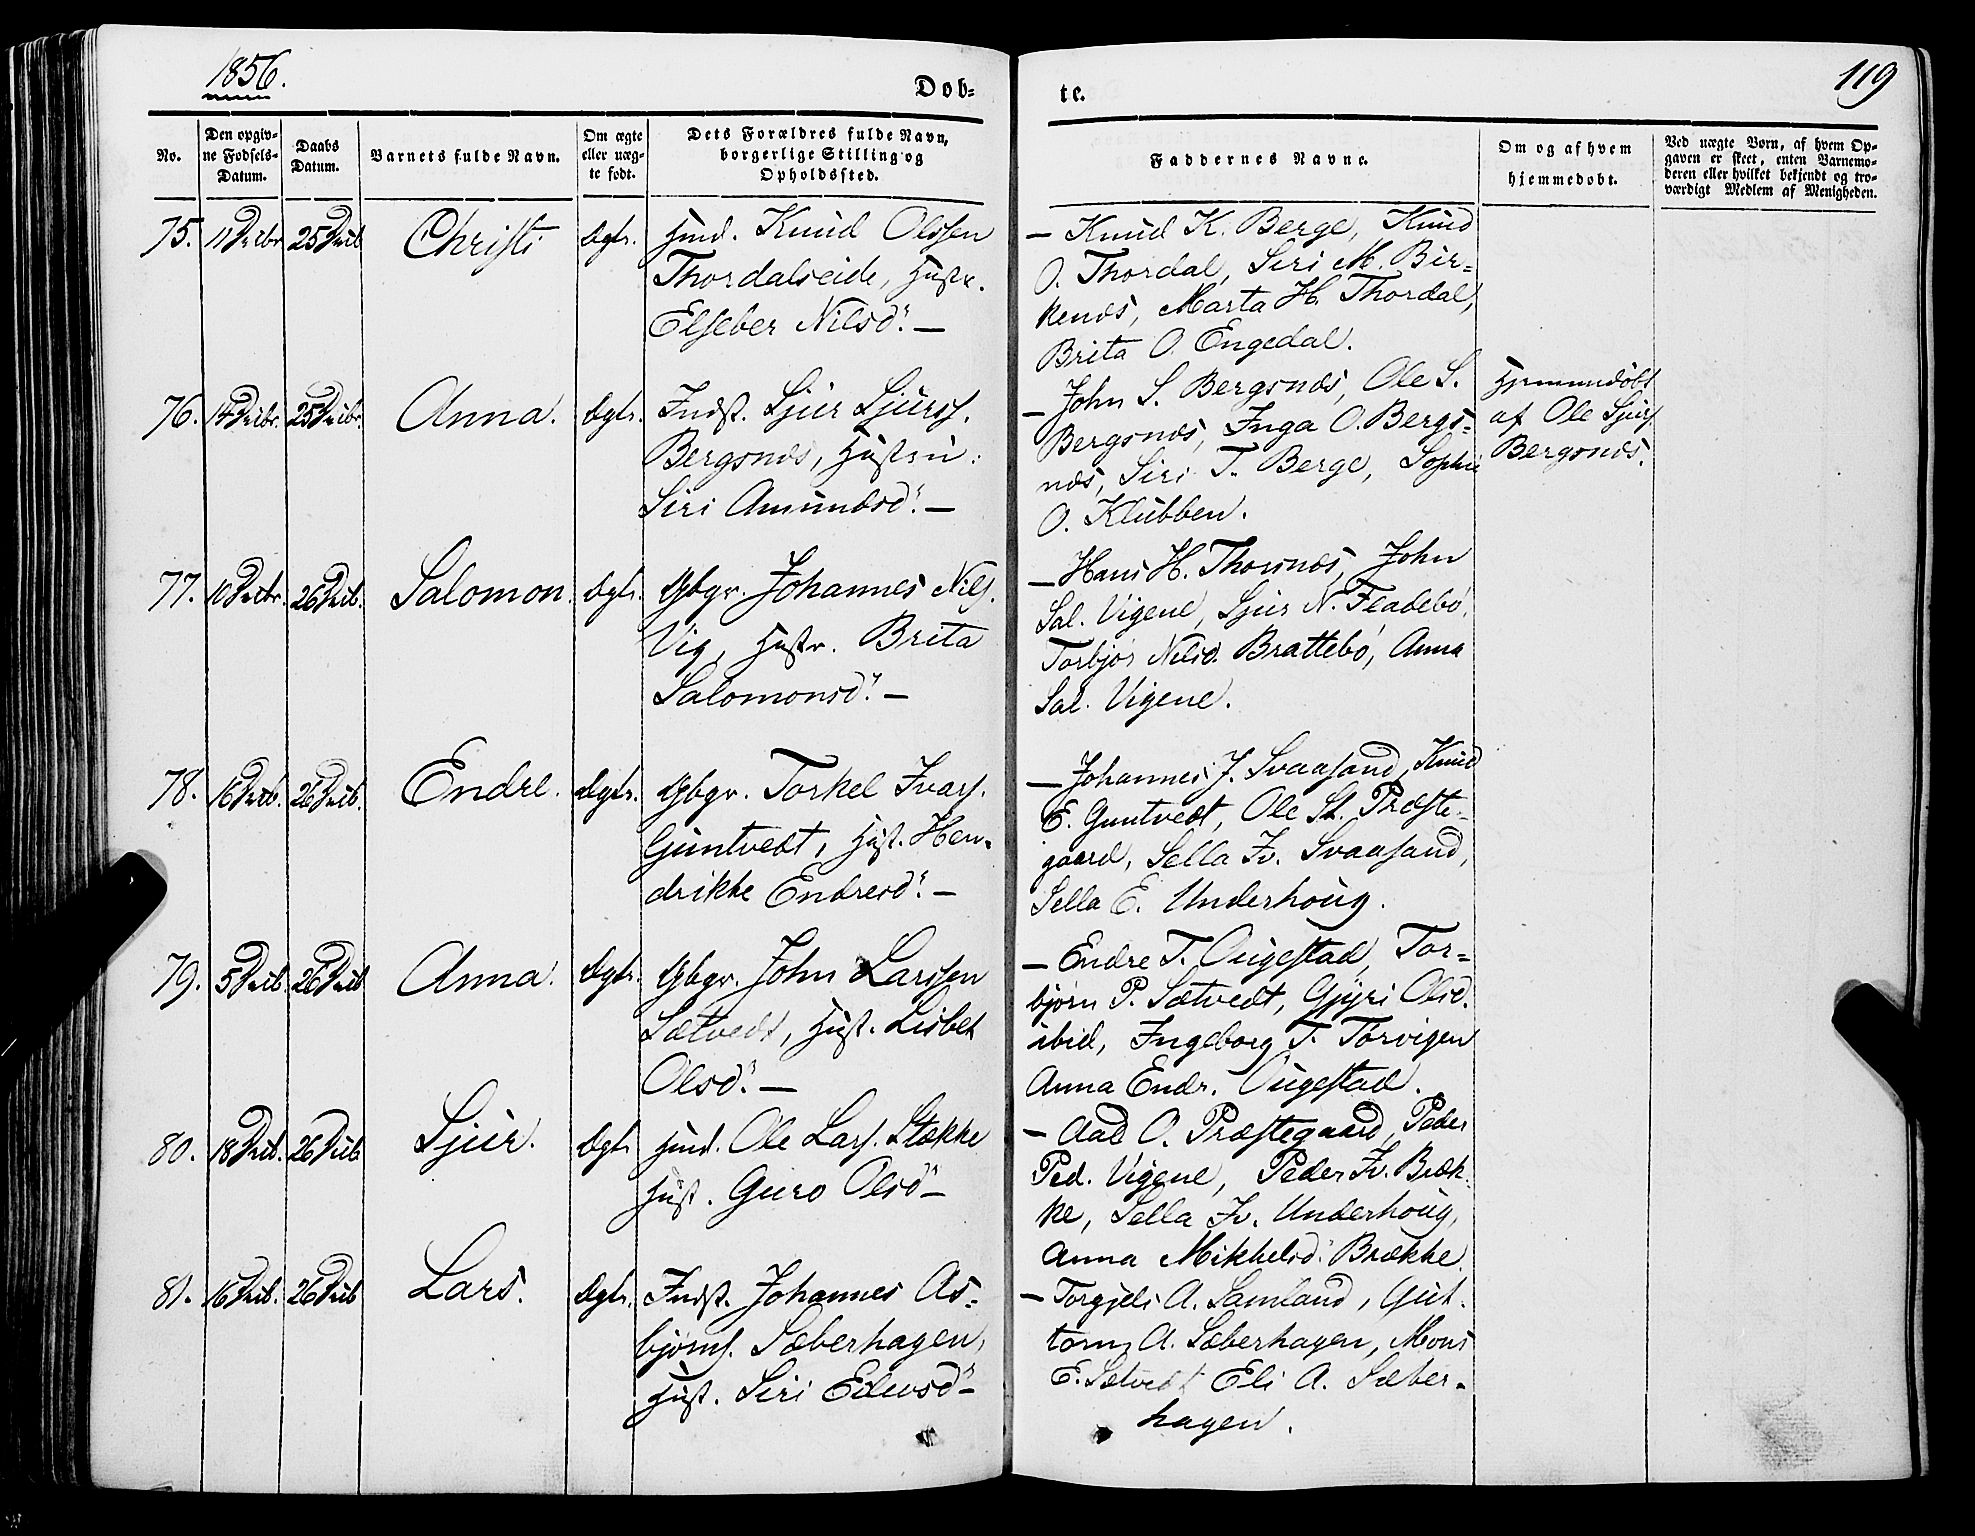 1856.
119
Døb=
te.
No.
Den opgiv=
ne Fødsels=
Datum.
Daabs
Datum.
Barnets fulde Navn.
Om ægte
eller uæg=
te født.
Dets Forældres fulde Navn,
borgerlige Stilling og
Opholdssted.
Faddernes Navne.
Om og af hvem
hjemmedøbt.
Ved uægte Børn, af hvem Op=
gaven er skeet, enten Barnemo=
deren eller hvilket bekjendt og tro=
værdigt Medlem af Menigheden.
75. 11 Decbr 25 Decb Christi Ægte. Huusmd. Knud Olssen
Thordalseide, Hustr.
Elseber Nilsd. —
— Knud K. Berge, Knud
O. Thordal, Siri M. Bir=
kenæs, Marta H. Thordal,
Brita O. Engedal.
76. 14 Decbr. 25 Decbr. Anna. Ægte. Indst. Sjur Sjurss.
Bergsnæs, Hustru:
Siri Amundsd. —
— John S. Bergsnæs, Ole S.
Bergsnæs, Inga O. Bergs=
næs, Siri T. Berge, Sophie
O. Klubben.
Hjemmedøbt
af Ole Sjurs.
Bergsnæs.
77. 10 Decbr. 26 Decb. Salomon. Ægte. Gbgr. Johannes Nils.
Vig, Hustr. Brita
Salomonsd. —
— Hans H. Thorsnæs, John
Sal. Vigene, Sjur N. Fladebø,
Torbjør Nilsd. Brattebø, Anna
Sal. Vigene.
78. 16 Decb. 26 Decb. Endre. Ægte. Gbgr. Torkel Ivars.
Guntvedt, Hust. Hen=
drikke Endresd. —
— Johannes J. Svaasand, Knud
E. Guntvedt, Ole St. Præste=
gaard, Sella Iv. Svaasand,
Sella E. Underhoug.
79. 5 Decb. 26 Decb Anna. Ægte. Gbgr. John Larssen
Sætvedt, Hust. Lisbet
Olsd. —
— Endre T. Augestad, Tor=
bjørn P. Sætvedt, Gjyri Olsd.
ibid, Ingeborg T. Torvigen
Anna Endr. Augestad.
80. 18 Decb. 26 Decb Sjur. Ægte Huusmd. Ole Lars. Stække
Hust. Guro Olsd —
— Aad O. Præstegaard, Peder
Ped. Vigene, Peder Iv. Bræk=
ke, Sella Iv. Underhoug,
Anna Mikkelsd. Brække.
81. 16 Decb. 26 Decb Lars. Ægte. Indst. Johannes As=
bjørns. Sæberhagen,
Hust. Siri —
— Torgjels A. Samland, Gut=
torm A. Sæberhagen, Mons
E. Sætvedt Eli A. Sæber=
hagen.